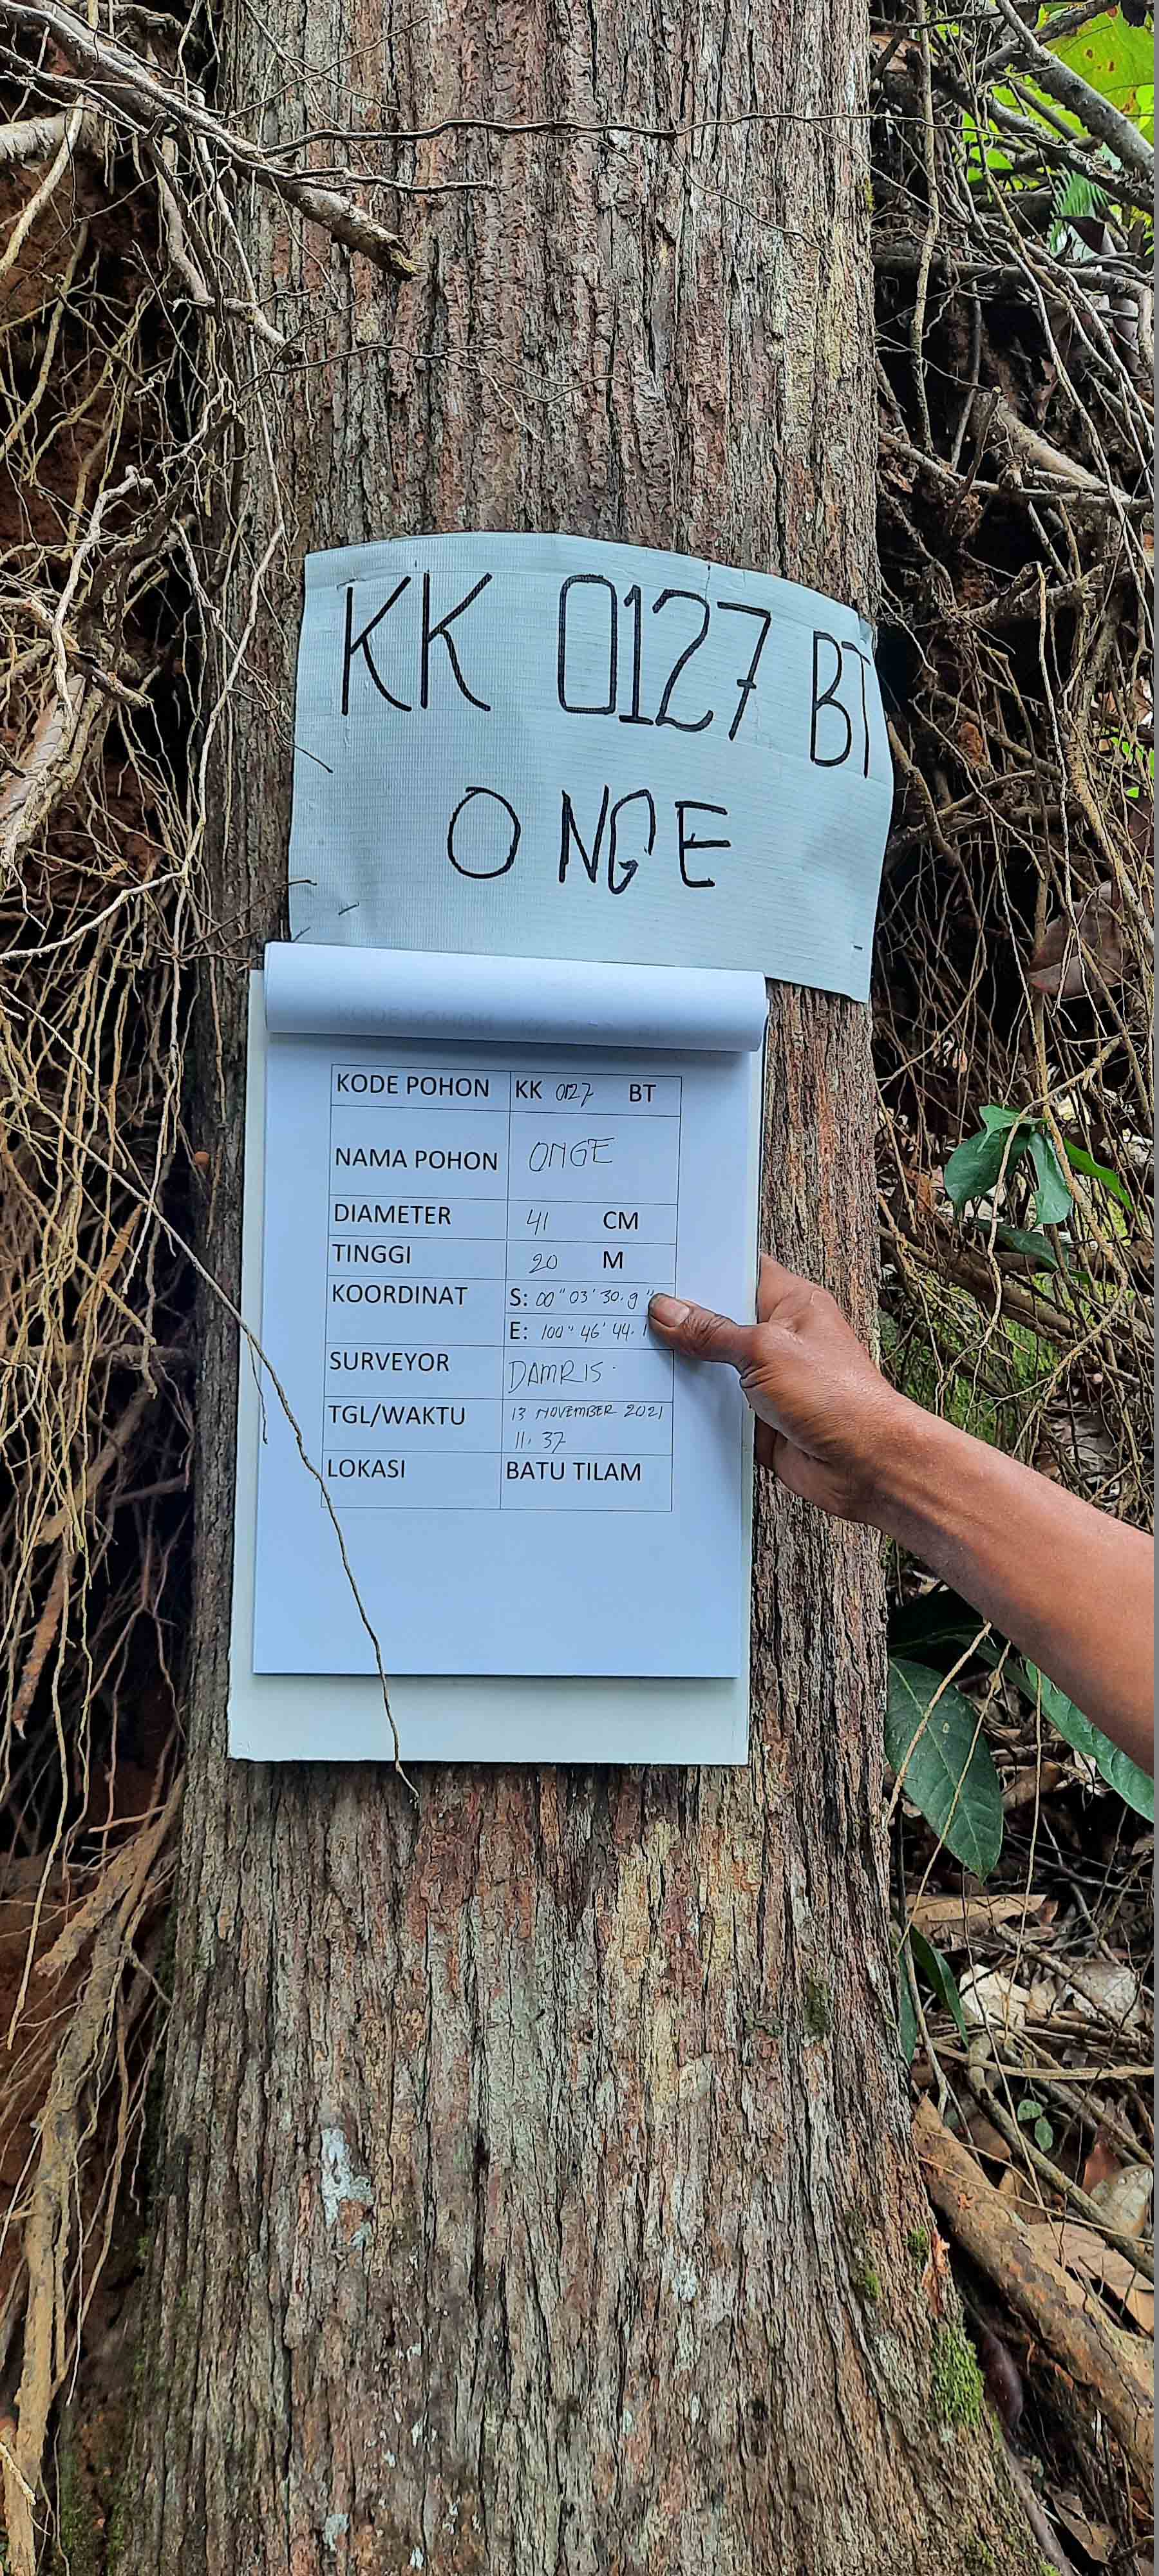 KK 0127 BT
ONGE
KODE POHON KK 0127 BT
NAMA POHON ONGE
DIAMETER 41 CM
TINGGI 20 M
KOORDINAT S: 00" 03' 30.9"
E: 100" 46' 44.
SURVEYOR DAMRIS
TGL/WAKTU 13 NOVEMBER 2021
11.37
LOKASI BATU TILAM